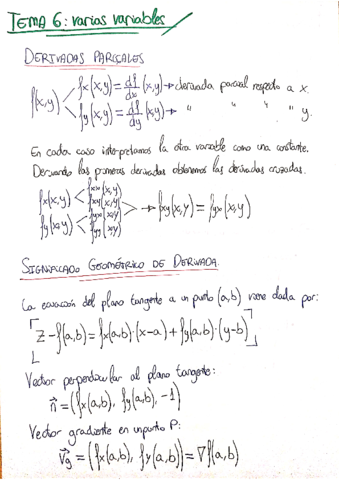 TEMA 6: varias variables
DERIVADAS PARCIALES
f(x,y) < fx(x,y) = df/dx (x,y) → derivada parcial respecto a x.
fy(x,y) = df/dy (x,y) → " " " " y.
En cada caso interpretamos la otra variable como una constante.
Derivando las primeras derivadas obtenemos las derivadas cruzadas.
fx(x,y) < fxx(x,y)
fxy(x,y) > → fxy(x,y) = fyx(x,y)
fy(x,y) < fyx(x,y)
fyy(x,y)
SIGNIFICADO GEOMÉTRICO DE DERIVADA.
La ecuación del plano tangente a un punto (a,b) viene dada por:
z - f(a,b) = fx(a,b)·(x-a) + fy(a,b)·(y-b)
Vector perpendicular al plano tangente:
n⃗ = (fx(a,b), fy(a,b), -1)
Vector gradiente en un punto P:
v⃗g = (fx(a,b), fy(a,b)) = ∇f(a,b)